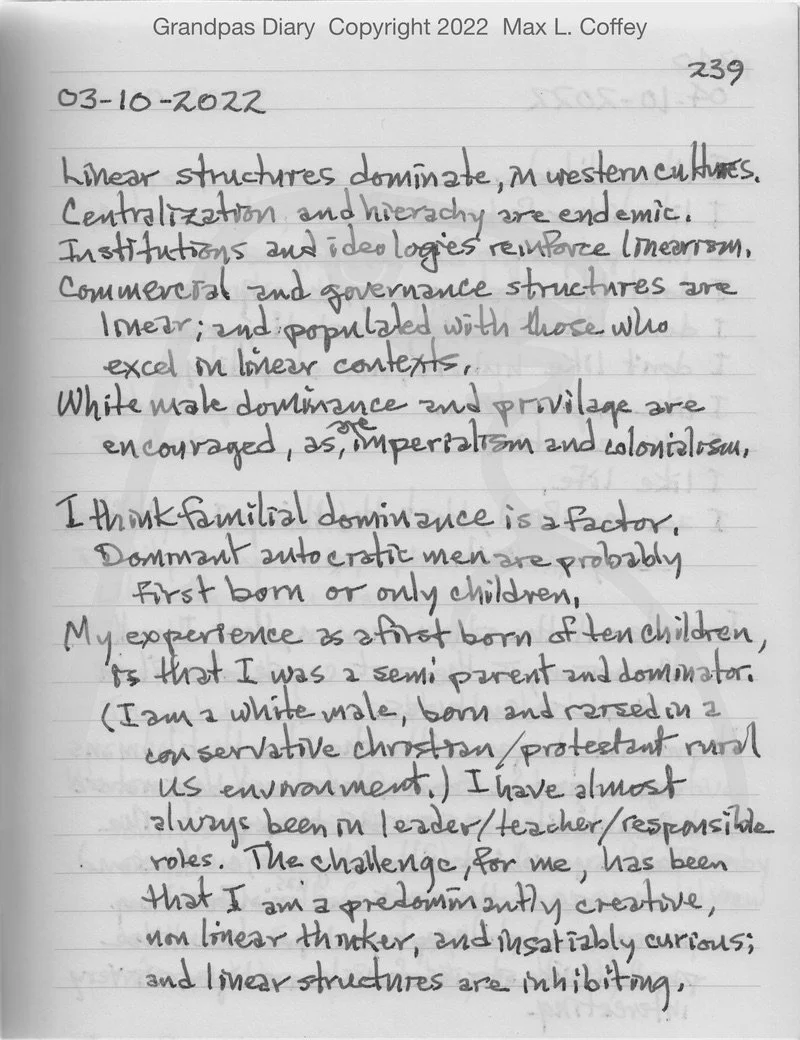 Grandpas Diary Copyright 2022 Max L. Coffey
239
03-10-2022
Linear structures dominate, in western cultures.
Centralization and hierachy are endemic.
Institutions and ideologies reinforce linearism.
Commercial and governance structures are
linear; and populated with those who
excel in linear contexts.
White male dominance and privilage are
encouraged, as, are imperialism and colonialism.
I think familial dominance is a factor.
Dominant autocratic men are probably
first born or only children.
My experience as a first born of ten children,
is that I was a semi parent and dominator.
(I am a white male, born and raised in a
conservative christian/protestant rural
US environment.) I have almost
always been in leader/teacher/responsible
roles. The challenge, for me, has been
that I am a predominantly creative,
non linear thinker, and insatiably curious;
and linear structures are inhibiting.